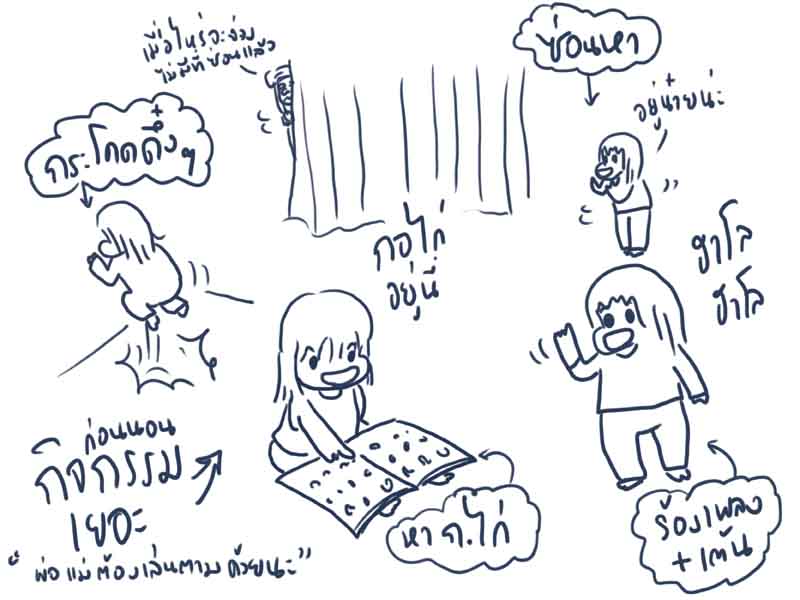 เมื่อไหร่จะง่วง
ไม่มีที่ซ่อนแล้ว
ซ่อนหา
อยู่น๊ายน่ะ
กระโดดดึ๋งๆ
กอไก่
อยู่นี่
ฮาโล
ฮาโล
ก่อนนอน
กิจกรรม
เยอะ
"พ่อแม่ต้องเล่นตามด้วยนะ"
หา ก.ไก่
ร้องเพลง
+เต้น